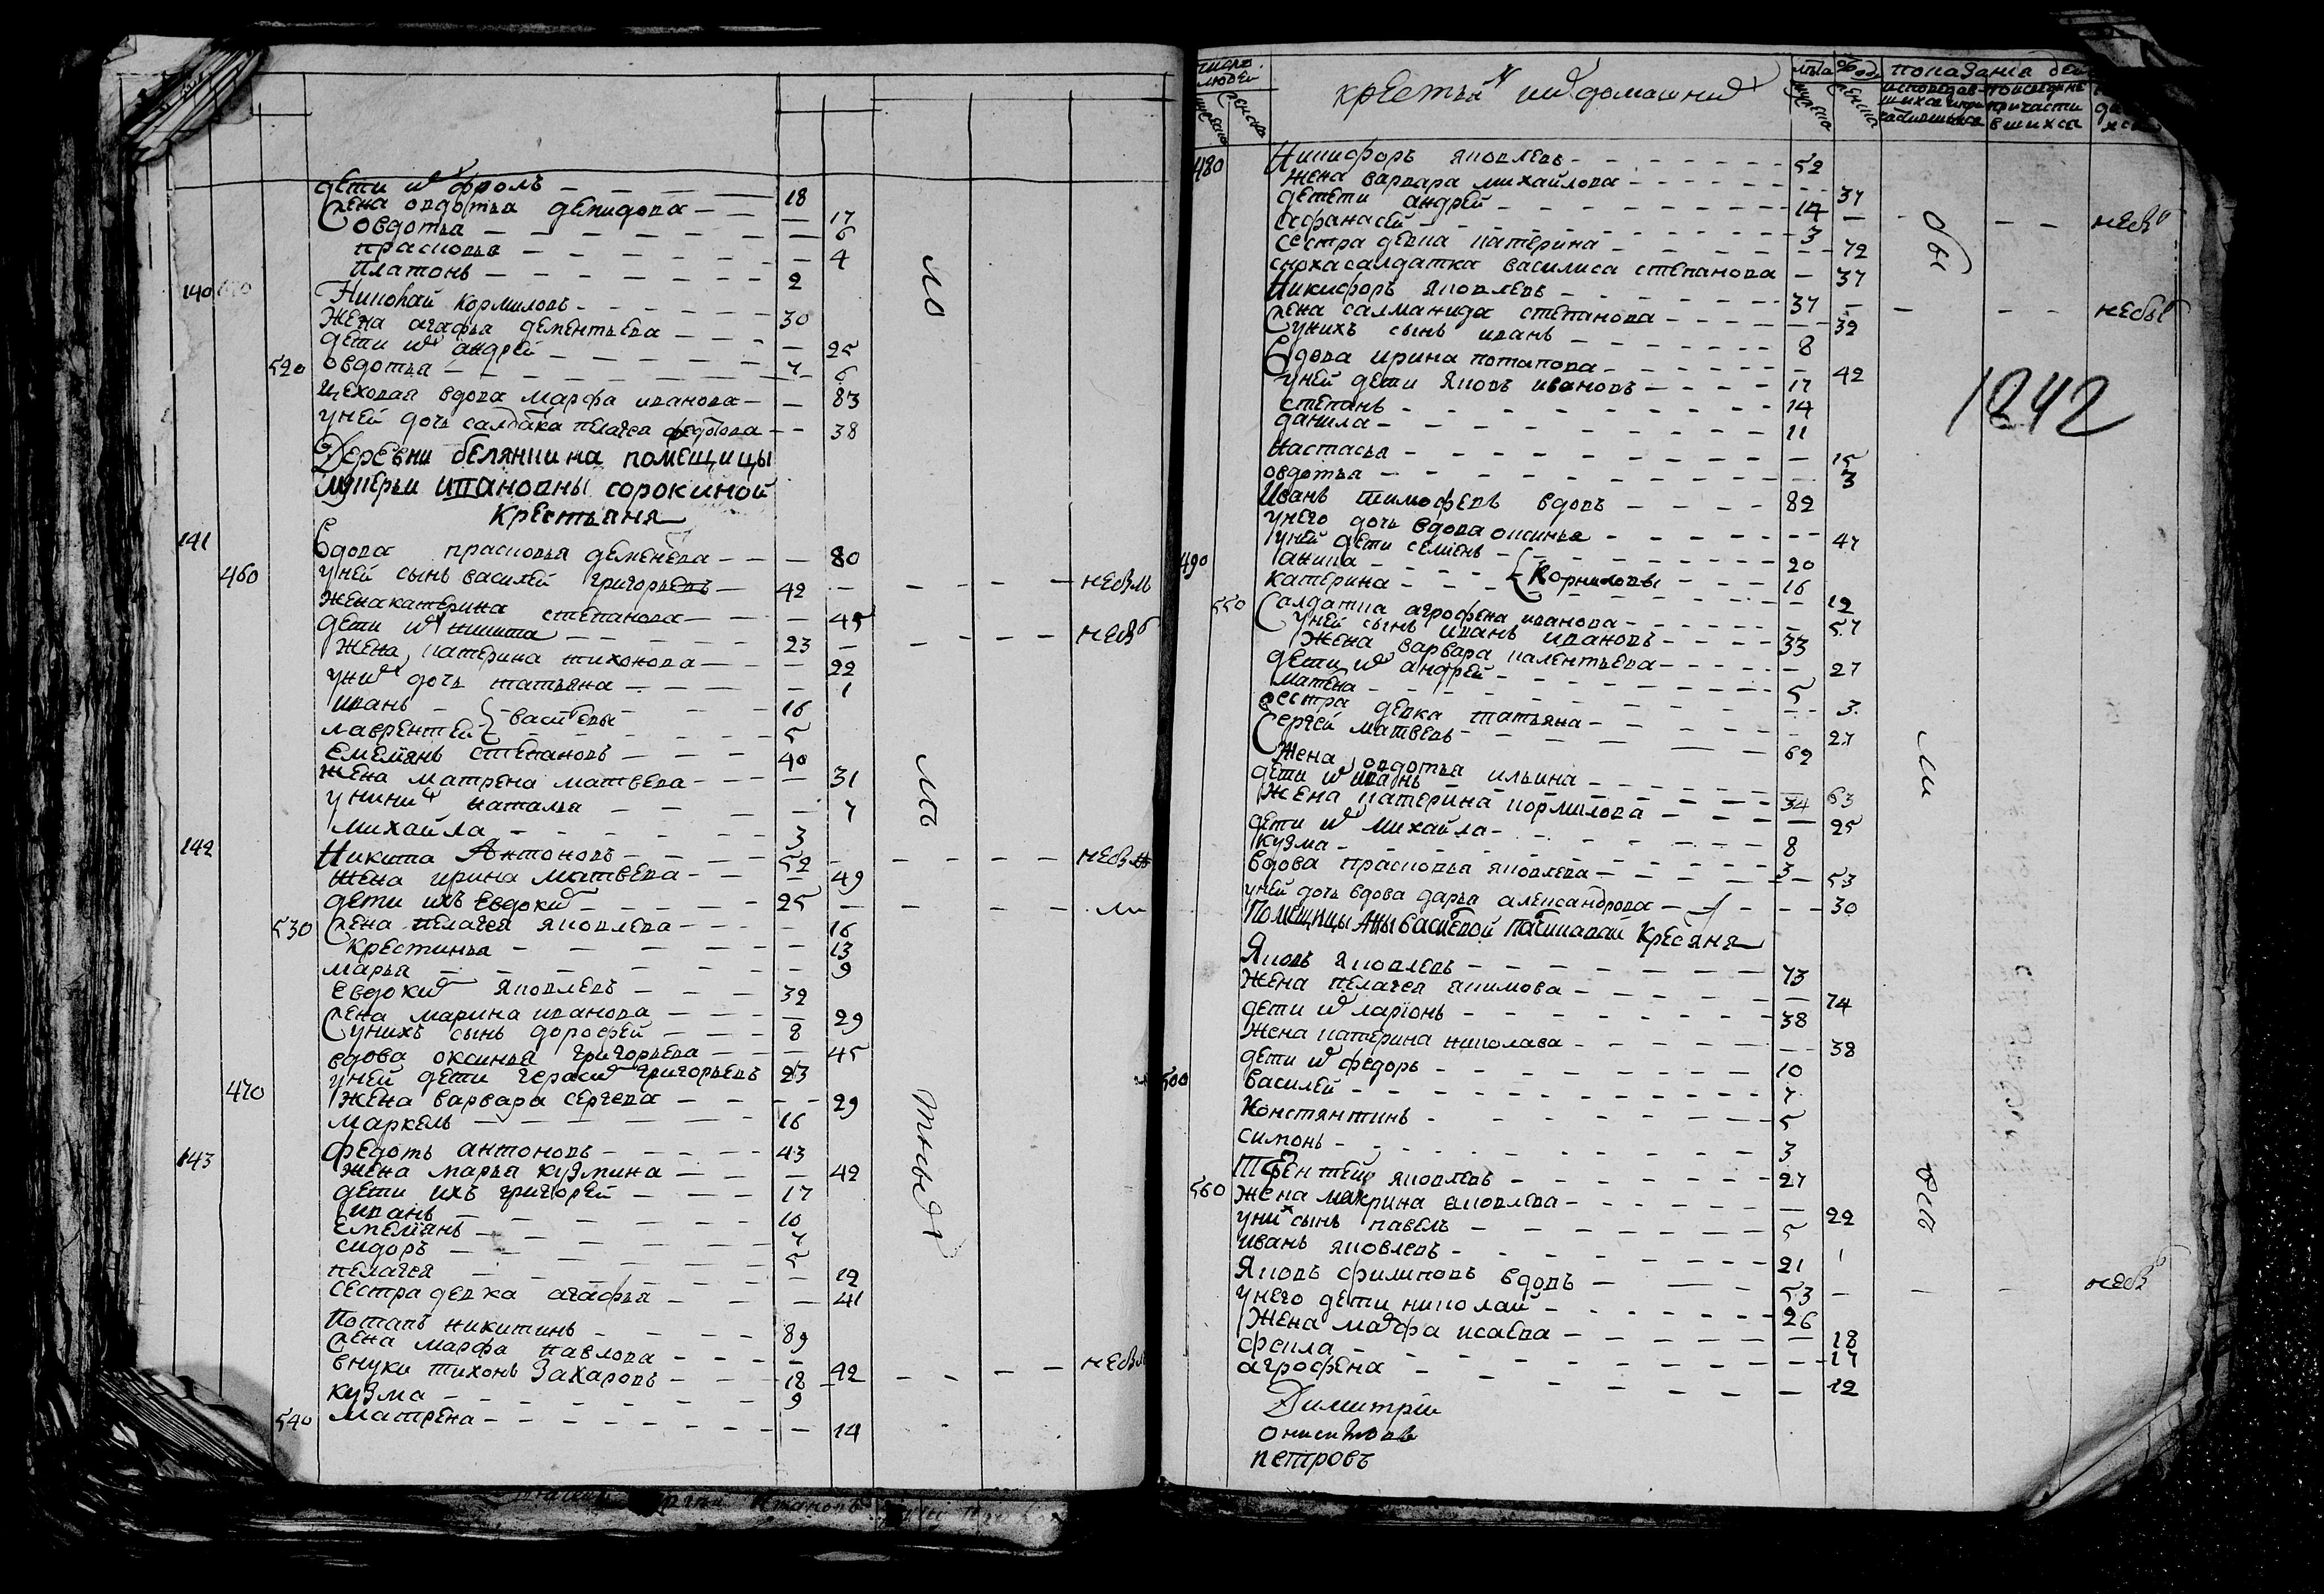 дети их фролъ — 18
жена овдотья демидова — 17
овдотья — 6
прасковья — 4
платонъ — 2
140 Николай кормиловъ — 30
жена агафья дементьева — 25
дети их андрей — 7
520 овдотья — 6
цеховая вдова марфа иванова — 83
у ней дочь салдатка пелагея федотова — 38
Деревни белянкина помещицы
ивановны сорокиной
крестьяня
141 вдова прасковья деменева — 80
460 у ней сынъ василей григорьевъ — 42
жена катерина степанова — 45
дети их никита — 23
жена катерина тихонова — 22
у них дочь татьяна — 1
иванъ — васильевы — 16
лаврентей — 5
емельянъ степановъ — 40
жена матрена матвева — 31
у них наталья — 7
михайла — 3
142 Никита Антоновъ — 52
жена ирина матвева — 49
дети ихъ евдоким — 25
530 жена пелагея яковлева — 16
крестинья — 13
марья — 9
евдоким яковлевъ — 32
жена марина иванова — 29
у нихъ сынъ дорофей — 8
вдова оксинья григорьева — 45
у ней дети герасим григорьевъ 23
470 жена варвара сергева — 29
маркелъ — 16
143 федотъ антоновъ — 43
жена марья кузмина — 42
дети ихъ григорей — 17
иванъ — 10
емельянъ — 7
сидоръ — 5
пелагея — 12
сестра девка агафья — 41
Потапъ никитинъ — 89
жена марфа павлова —
внуки тихонъ захаровъ — 18 42
кузма — 9
540 матрена — 14
ло
ль
тныя
число людей
мужеска
женска
крестьян их домашних
лета
показания
480 Никифоръ яковлевъ — 52
жена варвара михайлова — 37
дети андрей — 14
афанасей — 3
сестра девка катерина — 72
сноха салдатка василиса степанова — 37
Никифоръ яковлевъ — 37
жена саламанида степанова — 32
у нихъ сынъ иванъ — 8
вдова ирина потапова — 42
у ней дети яковъ ивановъ — 17
степанъ — 14
данила — 11
настасья — 15
овдотья — 3
Иванъ тимофевъ вдовъ — 82
у него дочь вдова оксинья — 47
у ней дети семенъ — 20
490 — Корниловы — 16
катерина — 12
550 салдатка агрофена иванова — 57
у ней сынъ иванъ ивановъ — 33
жена варвара — 27
дети их андрей — 5
матрена — 3
сестра девка татьяна — 27
сергей матвевъ — 62
жена овдотья ильина — 63
дети их иванъ — 34
жена катерина кормилова — 25
дети их михайла — 8
кузма — 3
вдова прасковья яковлева — 53
у ней дочь вдова дарья александрова — 30
Помещицы Анны васильевой крестьяня
Яковъ яковлевъ — 73
жена пелагея якимова — 74
дети их ларионъ — 38
жена катерина николава — 38
дети их федоръ — 10
500 василей — 7
константинъ — 5
симонъ — 3
терентей яковлевъ — 27
560 жена макрина яковлева — 22
у них сынъ павелъ — 5
иванъ яковлевъ — 21
яковъ филиповъ вдовъ — 53
у него дети николай — 26
жена марфа исаева — 18
фекла — 17
агрофена — 12
Димитрій
петровъ
1242